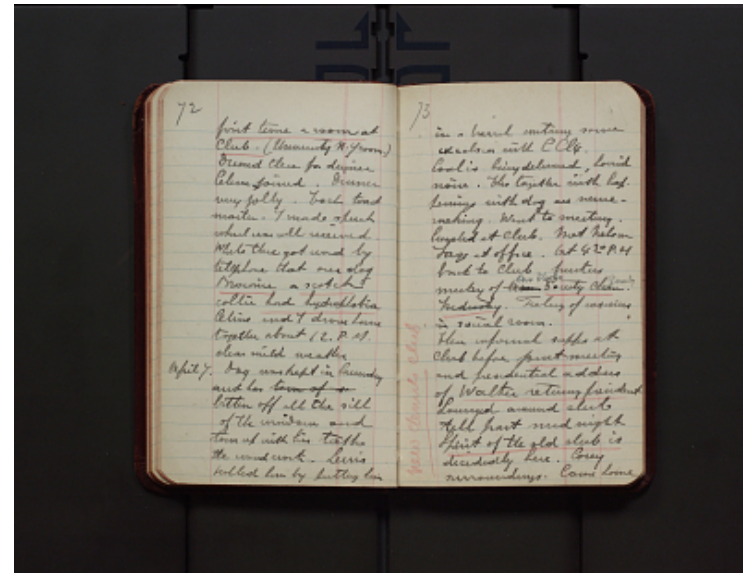 72
first time a room at
Club. (University N.Y. room)
Dressed there for dinner
Celine joined. Dinner
very jolly. toast
master. I made speech
which was well received
While there got word by
telephone that our dog
Brownie a scotch
collie had hydrophobia
Celine and I drove home
together about 12. P.M.
clear mild weather
April 7. Dog was kept in laundry
and has torn of a
bitten off all the sill
of the window and
torn up with his teeth
the wood work. Lewis
killed him by putting him
73
in a barrel
with
Coal is being delivered, horrid
noise. This together with hap-
penings with dog are nerve-
racking. Went to meeting.
Lunched at Club. Met Nelson
at office. At 4 P.M
back to Club.
meeting of County Chem.
Industry. Feeling of
in social room.
Then informal supper at
Club before first meeting
and presidential address
of Walker retiring president
Lounged around club
till past mid night
Spirit of the old club is
decidedly here. Cosey
surroundings. Came home
New Chemists Club